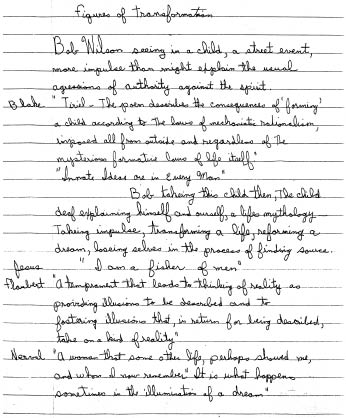 Figures of Transformation
Bob Wilson seeing in a child, a street event,
more impulse than might explain the usual
agressions of authority against the spirit.
Blake "Tiriel - The poem describes the consequences of 'forming'
a child according to The laws of mechanistic rationalism,
imposed all from outside and regardless of The
mysterious formative laws of life itself."
"Innate Ideas are in Every Man"
Bob takeing this child then, The child
deaf explaining himself and ourself, a lifes mythology.
Takeing impulse, transforming a life, reforming a
dream, loseing selves in the process of finding source.
Jesus "I am a fisher of men"
Flaubert "A temperament that leads to thinking of reality as
providing illusions to be described and to
fostering illusions that, in return for being described,
take on a kind of reality"
Nerval "A woman that some other life, perhaps showed me,
and whom I now remember" It is what happens
sometimes in the illumination of a dream"